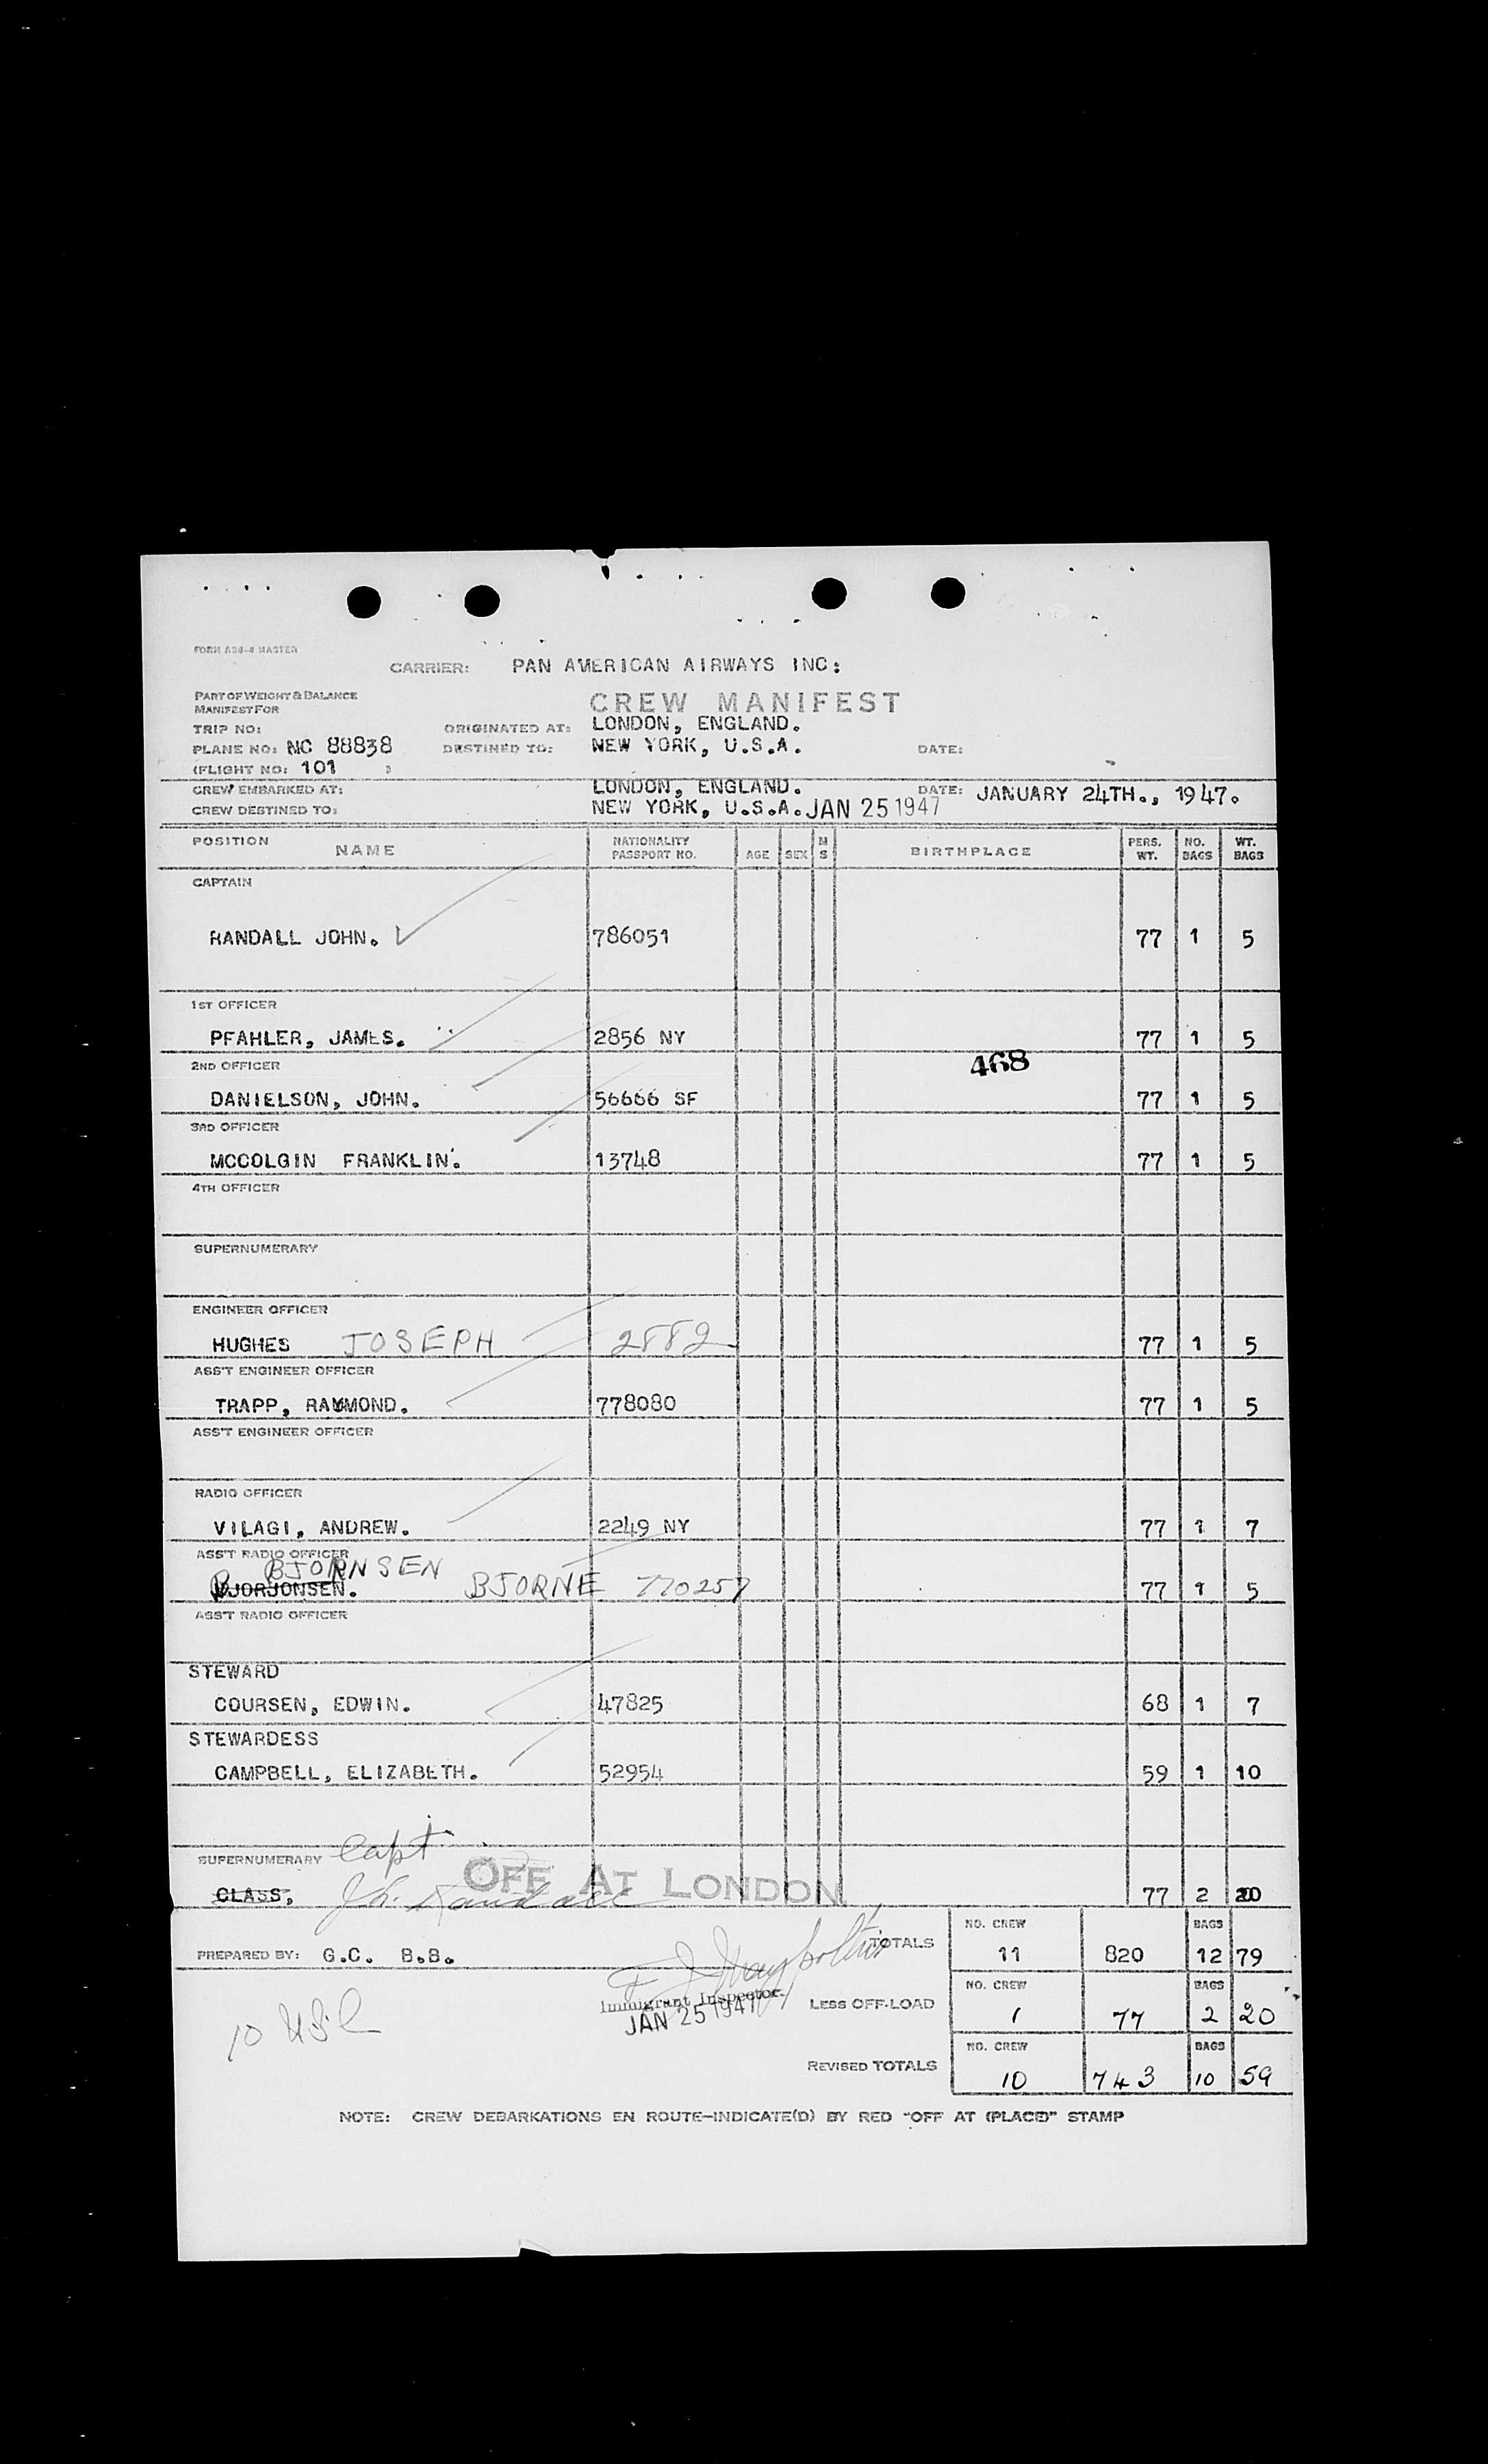 FORM A36-4 MASTER
CARRIER: PAN AMERICAN AIRWAYS INC:
PART OF WEIGHT & BALANCE
MANIFEST FOR
CREW MANIFEST
TRIP NO: ORIGINATED AT: LONDON, ENGLAND.
PLANE NO: NC 88838 DESTINED TO: NEW YORK, U.S.A. DATE:
(FLIGHT NO: 101 )
CREW EMBARKED AT: LONDON, ENGLAND. DATE: JANUARY 24TH., 1947.
CREW DESTINED TO: NEW YORK, U.S.A. JAN 25 1947
POSITION NAME NATIONALITY PASSPORT NO. AGE SEX M S BIRTHPLACE PERS. WT. NO. BAGS WT. BAGS
CAPTAIN
RANDALL JOHN. 786051 77 1 5
1ST OFFICER
PFAHLER, JAMES. 2856 NY 77 1 5
2ND OFFICER 468
DANIELSON, JOHN. 56666 SF 77 1 5
3RD OFFICER
MCCOLGIN FRANKLIN. 13748 77 1 5
4TH OFFICER
SUPERNUMERARY
ENGINEER OFFICER
HUGHES JOSEPH 2882 77 1 5
ASS'T ENGINEER OFFICER
TRAPP, RAYMOND. 778080 77 1 5
ASS'T ENGINEER OFFICER
RADIO OFFICER
VILAGI, ANDREW. 2249 NY 77 1 7
ASS'T RADIO OFFICER
BJORNSEN
BJORJONSEN. BJORNE 770257 77 1 5
ASS'T RADIO OFFICER
STEWARD
COURSEN, EDWIN. 47825 68 1 7
STEWARDESS
CAMPBELL, ELIZABETH. 52954 59 1 10
SUPERNUMERARY Capt
CLASS, Randall OFF AT LONDON 77 2 20
NO. CREW BAGS
PREPARED BY: G.C. B.B. TOTALS 11 820 12 79
NO. CREW BAGS
Immigrant Inspector
JAN 25 1947 LESS OFF-LOAD 1 77 2 20
10 USC
NO. CREW BAGS
REVISED TOTALS 10 743 10 59
NOTE: CREW DEBARKATIONS EN ROUTE—INDICATE(D) BY RED "OFF AT (PLACE)" STAMP